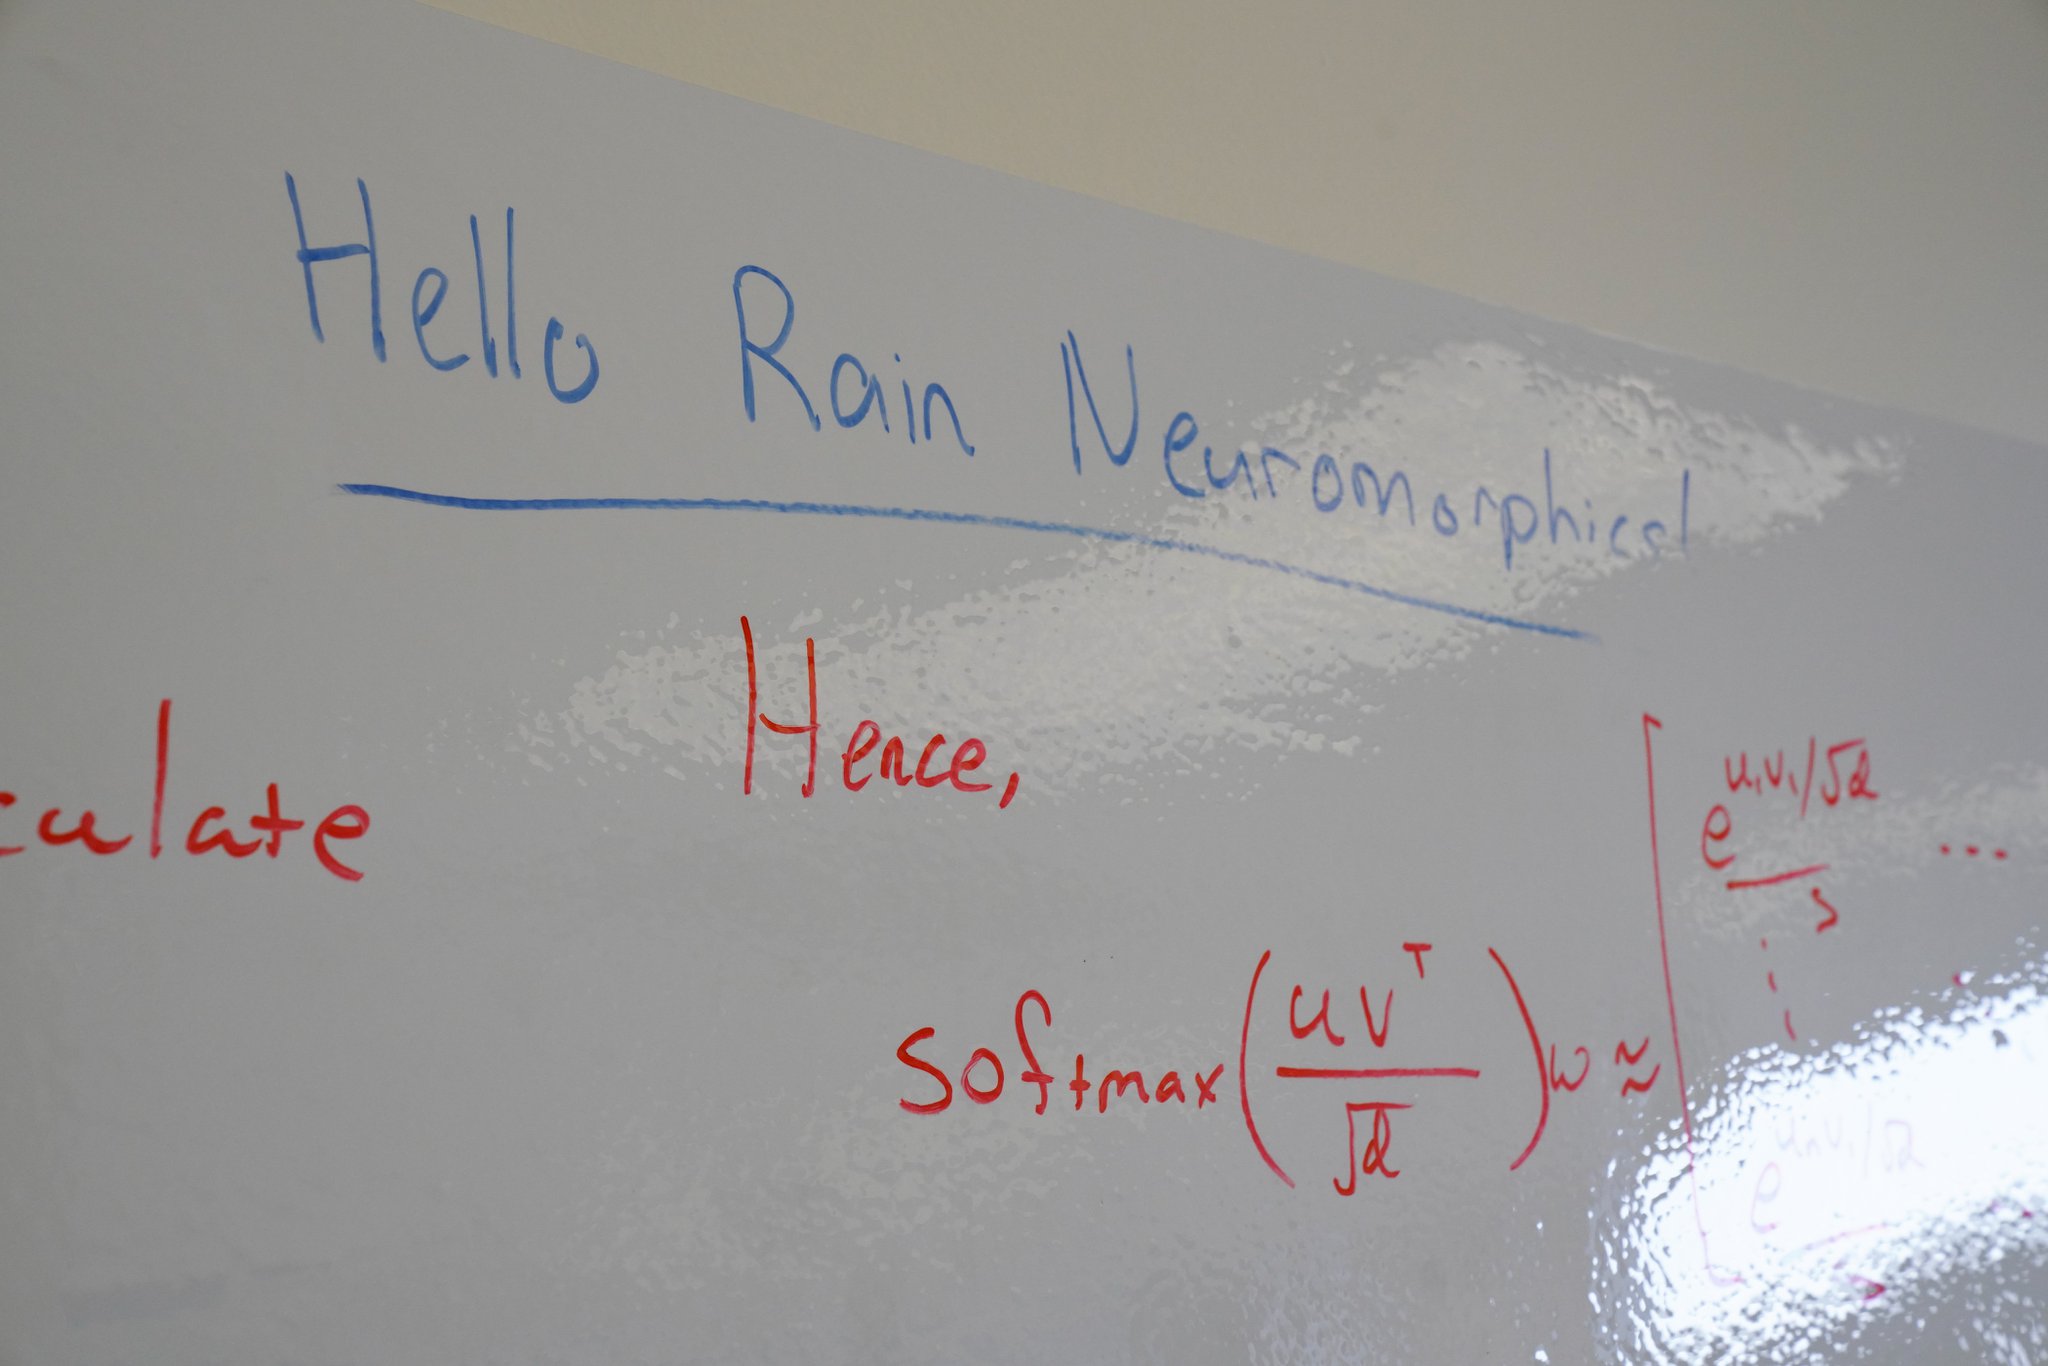 Hello Rain Neuromorphical
Hence,
culate
softmax(uvᵀ/√d)w ≈ [e^(u₁v₁/√d)/s ...
⋮
e^(uₙv₁/√d)